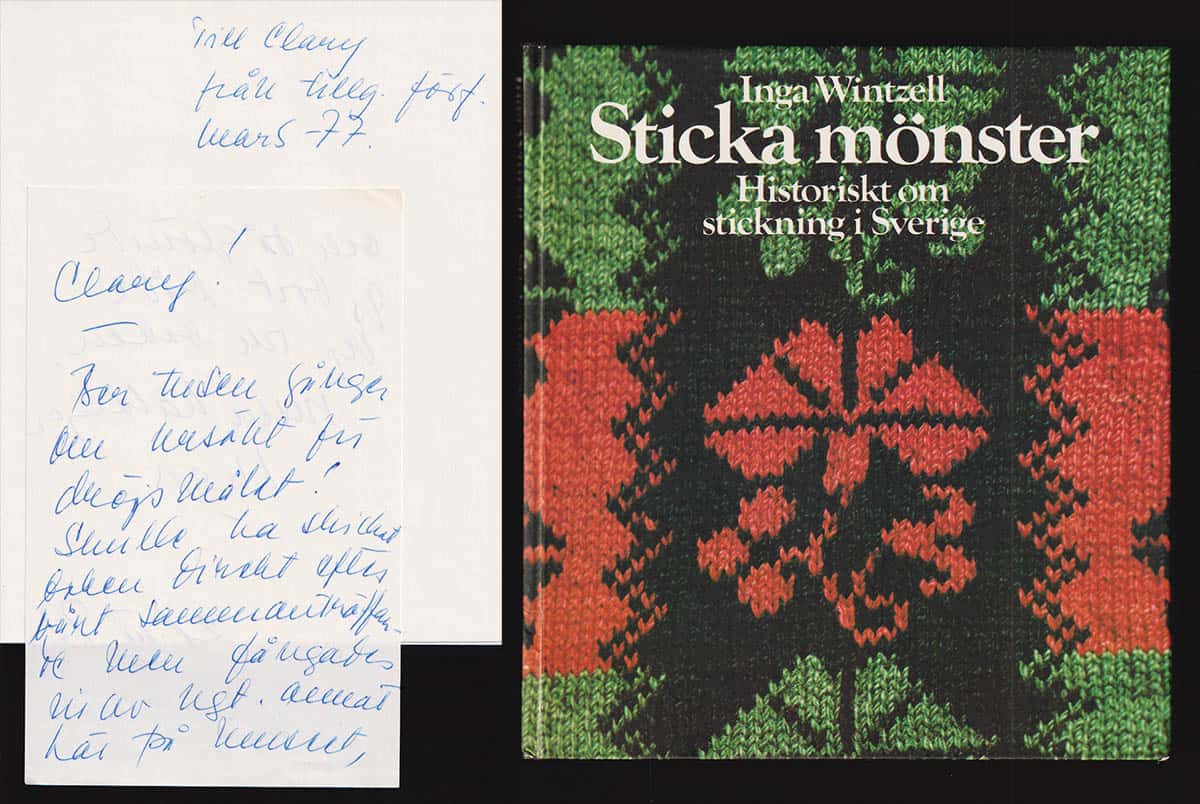 Till Clary
från tillg. förf.
Mars -77.
Clary!
Ber tusen gånger
om ursäkt för
dröjsmålet!
Skulle ha skickat
boken direkt efter
vårt sammanträffan-
de men fångades
in av ngt. annat
här på museet,
Inga Wintzell
Sticka mönster
Historiskt om
stickning i Sverige